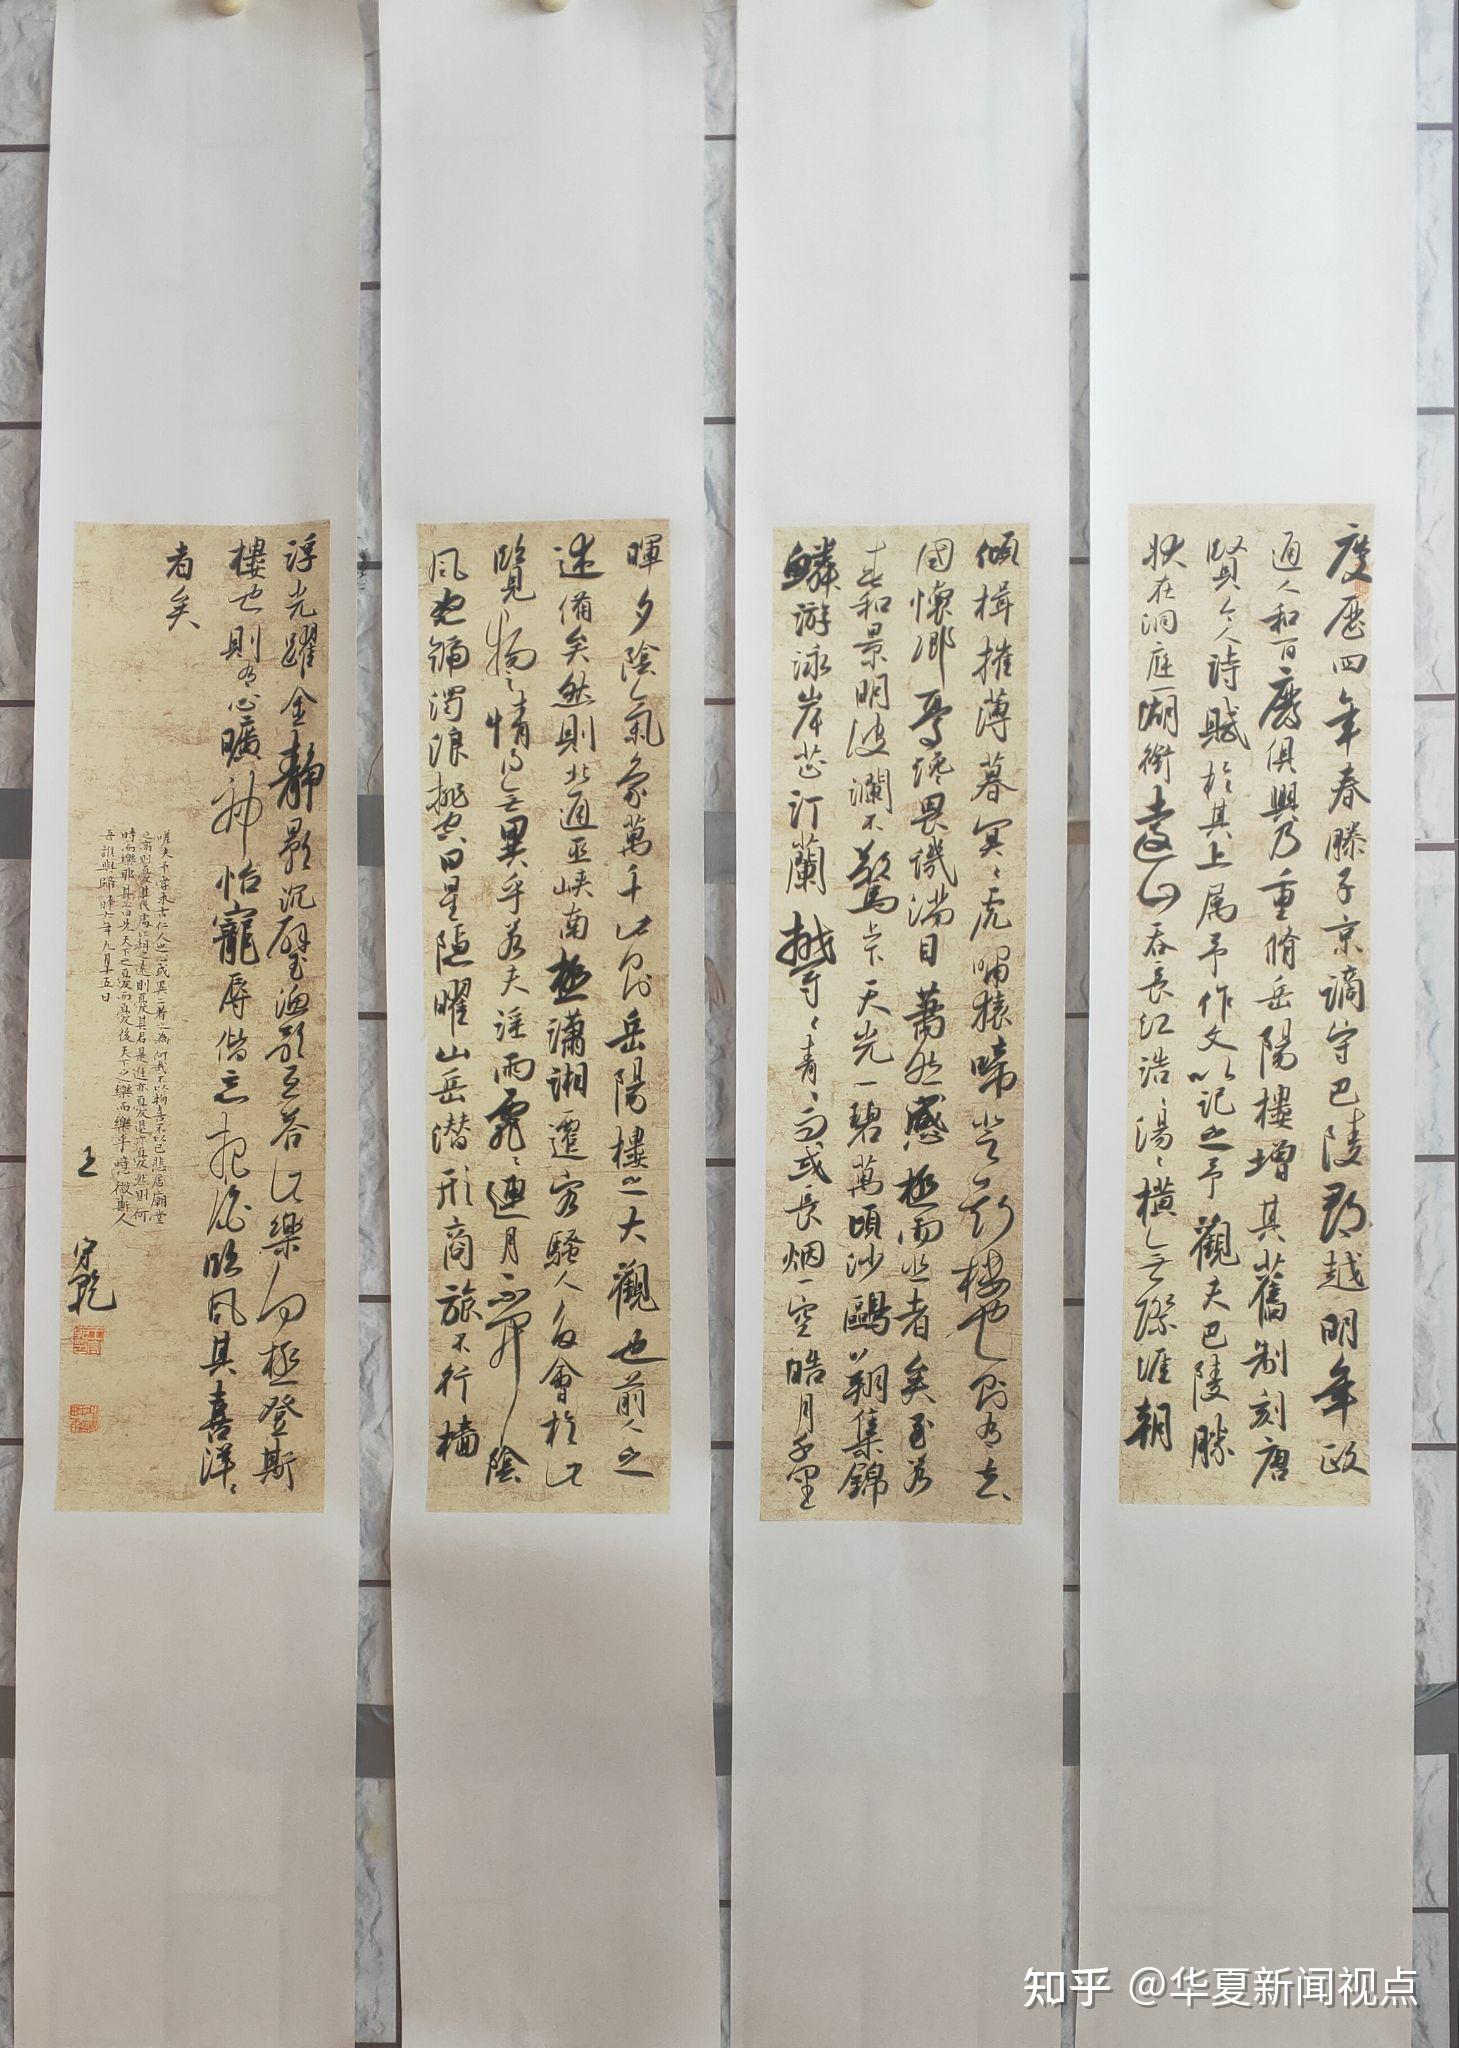 慶歷四年春滕子京謫守巴陵郡越明年政
通人和百廢俱興乃重脩岳陽樓增其舊制刻唐
賢今人詩賦於其上属予作文以記之予觀夫巴陵勝
狀在洞庭一湖銜遠山吞長江浩〻湯〻橫無際涯朝
傾楫摧薄暮冥〻虎嘯猿啼登斯樓也則有去
國懷鄉憂讒畏譏滿目蕭然感極而悲者矣至若
春和景明波瀾不驚上下天光一碧萬頃沙鷗翔集錦
鱗游泳岸芷汀蘭鬱〻青〻而或長烟一空皓月千里
暉夕陰氣象萬千此則岳陽樓之大觀也前人之
述備矣然則北通巫峽南極瀟湘遷客騷人多會於此
覽物之情得無異乎若夫淫雨霏〻連月不開陰
風怒號濁浪排空日星隱曜山岳潜形商旅不行檣
浮光躍金靜影沉璧漁歌互答此樂何極登斯
樓也則有心曠神怡寵辱偕忘把酒臨風其喜洋〻
者矣
嗟夫予嘗求古仁人之心或異二者之為何哉不以物喜不以己悲居廟堂
之高則憂其民處江湖之遠則憂其君是進亦憂退亦憂然則何
時而樂耶其必曰先天下之憂而憂後天下之樂而樂乎噫微斯人
吾誰與歸時六年九月十五日
王
守乾
知乎 @华夏新闻视点